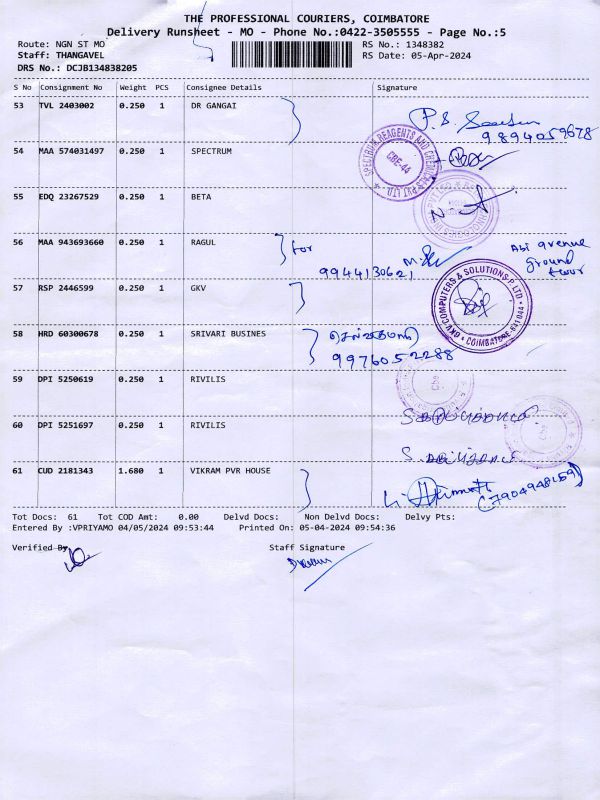 THE PROFESSIONAL COURIERS, COIMBATORE
Delivery Runsheet - MO - Phone No.:0422-3505555 - Page No.:5
Route: NGN ST MO
RS No.: 1348382
Staff: THANGAVEL
RS Date: 05-Apr-2024
DRS No.: DCJB134838205
S No Consignment No Weight PCS Consignee Details Signature
53 TVL 2403002 0.250 1 DR GANGAI
9894059678
54 MAA 574031497 0.250 1 SPECTRUM
SPECTRUM REAGENTS AND CHEMICALS PVT LTD
CBE-44
55 EDQ 23267529 0.250 1 BETA
56 MAA 943693660 0.250 1 RAGUL
for
9944130621
Abi avenue
ground
floor
57 RSP 2446599 0.250 1 GKV
GKV COMPUTERS & SOLUTIONS P LTD
COIMBATORE-641044
58 HRD 60300678 0.250 1 SRIVARI BUSINES
9976052288
59 DPI 5250619 0.250 1 RIVILIS
60 DPI 5251697 0.250 1 RIVILIS
61 CUD 2181343 1.680 1 VIKRAM PVR HOUSE
(7904948159)
Tot Docs: 61 Tot COD Amt: 0.00 Delvd Docs: Non Delvd Docs: Delvy Pts:
Entered By :VPRIYAMO 04/05/2024 09:53:44 Printed On: 05-04-2024 09:54:36
Verified By
Staff Signature